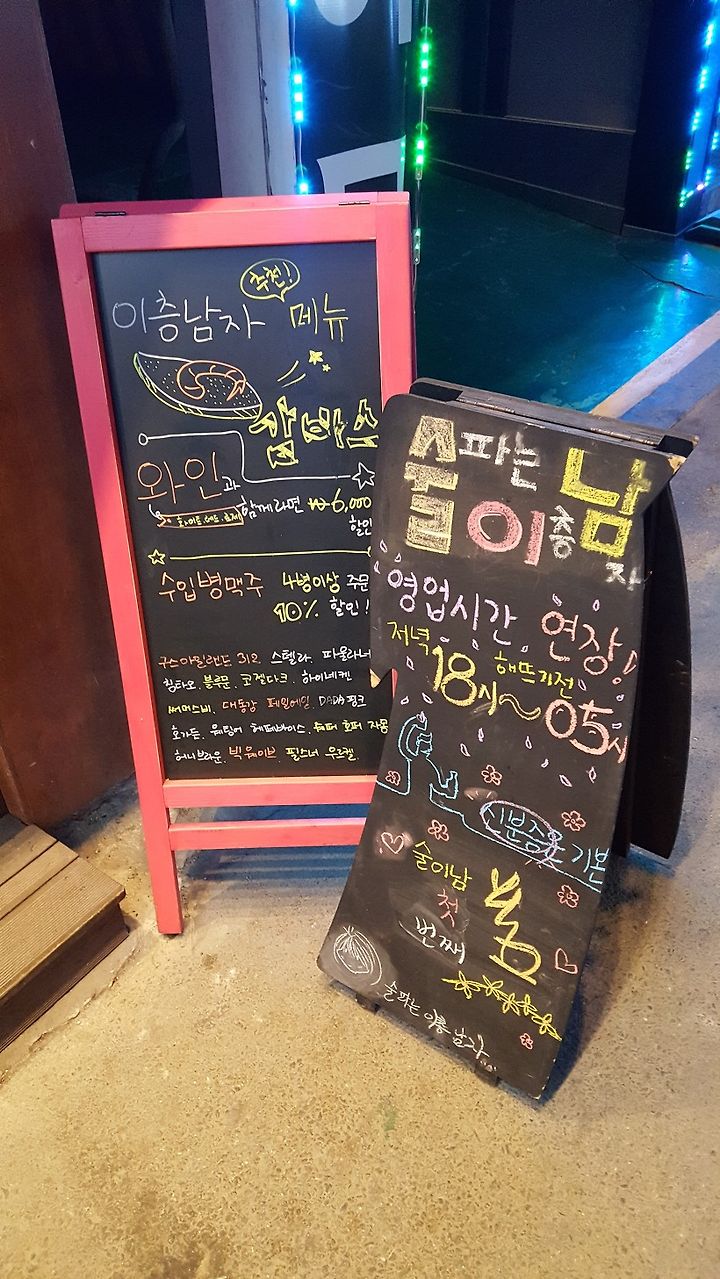 추천!
이층남자 메뉴
감바스
와인과
화이트, 레드, 로제 함께라면 ₩6,000
할인
수입병맥주 4병이상 주문
10% 할인!
구스아일랜드 312. 스텔라. 파울라너
칭타오. 블루문. 코젤다크. 하이네켄
써머스비. 대동강 페일에일. DADA핑크
호가든. 웨팅어 헤페바이스. 쉐퍼 호퍼 자몽
허니브라운. 빅웨이브. 필스너 우르켈.
술파는 남
이층
자
영업시간 연장!
저녁 해뜨기전
18시~05시
기분
술이남
첫 봄
번째
술파는 이층남자